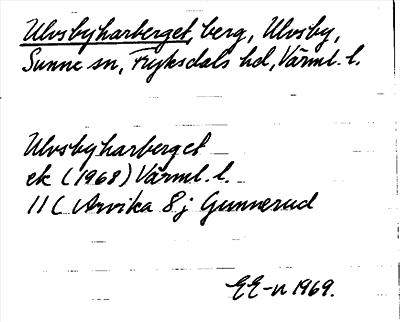 Ulvsbyharberget, berg, Ulvsby,
Sunne sn, Fryksdals hd, Värml. l.
Ulvsbyharberget
ek (1968) Värml. l.
11 C Arvika 8 j Gunnerud
EE-n 1969.